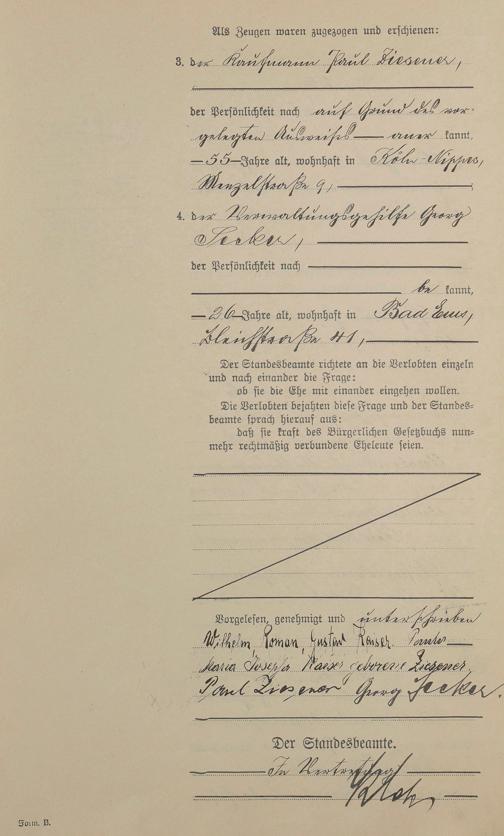 Als Zeugen waren zugezogen und erschienen:
3. der Kaufmann Paul Ziesener,
der Persönlichkeit nach auf Grund des vor-
gelegten Ausweises — aner kannt,
— 55 — Jahre alt, wohnhaft in Köln-Nippes,
Menzelstraße 9, —
4. der Verwaltungsgehilfe Georg
Secker, —
der Persönlichkeit nach —
— be kannt,
— 26 — Jahre alt, wohnhaft in Bad Ems,
Bleichstraße 41, —
Der Standesbeamte richtete an die Verlobten einzeln
und nach einander die Frage:
ob sie die Ehe mit einander eingehen wollen.
Die Verlobten bejahten diese Frage und der Standes-
beamte sprach hierauf aus:
daß sie kraft des Bürgerlichen Gesetzbuchs nun-
mehr rechtmäßig verbundene Eheleute seien.
Vorgelesen, genehmigt und unterschrieben
Wilhelm, Roman, Gustav Kaiser.
Maria Josepha Kaiser geborene Ziesener,
Paul Ziesener Georg Secker.
Der Standesbeamte.
In Vertretung
Form. B.